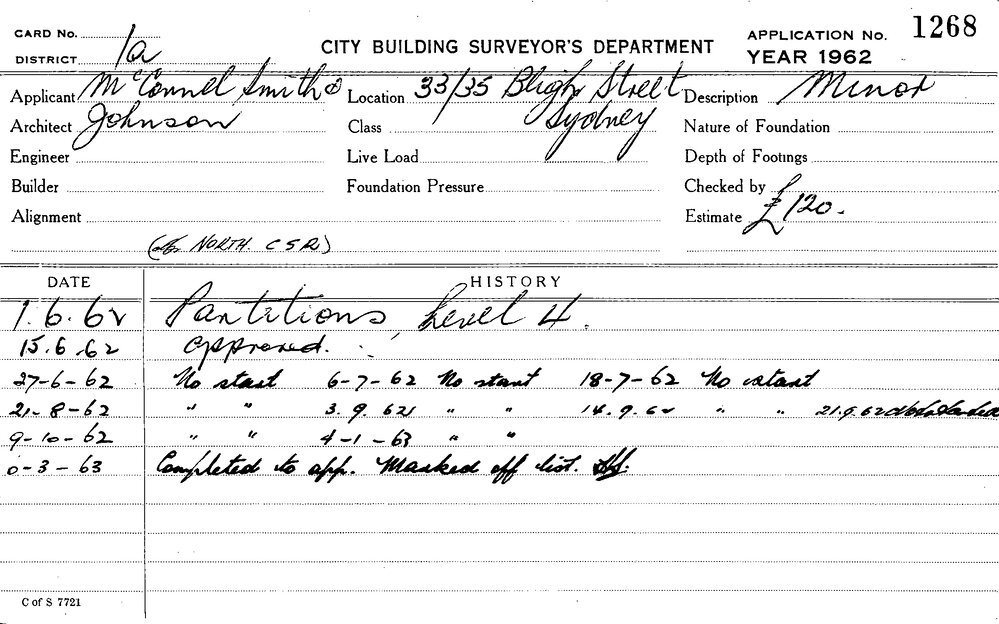 CARD No.
DISTRICT 1a
CITY BUILDING SURVEYOR'S DEPARTMENT
APPLICATION No. 1268
YEAR 1962
Applicant McConnel Smith &
Location 33/35 Bligh Street
Description Minor
Architect Johnson
Class Sydney
Nature of Foundation
Engineer
Live Load
Depth of Footings
Builder
Foundation Pressure
Checked by
Alignment
Estimate £120.
NORTH. C S R)
DATE HISTORY
1.6.62 Partitions, Level 4.
15.6.62 approved.
27-6-62 No start 6-7-62 No start 18-7-62 No start
21-8-62 " " 3.9.62 " " 14.9.62 " " 21.9.62
9-10-62 " " 4-1-63 " "
0-3-63 Completed to app. Marked off list.
C of S 7721